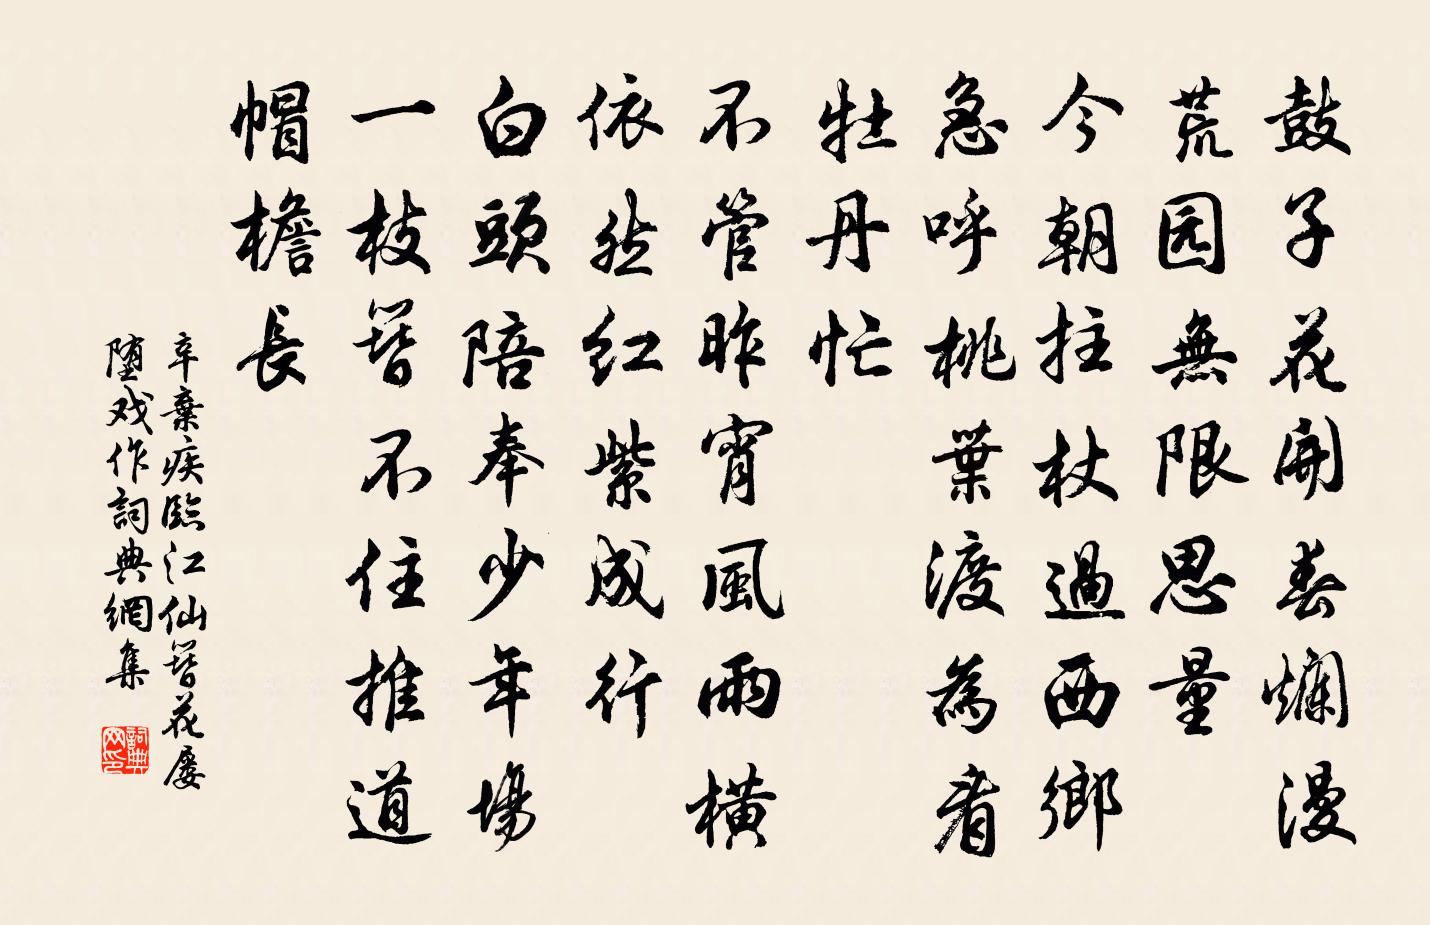 鼓子花開春爛漫
荒园無限思量
今朝拄杖過西鄉
急呼桃葉渡
為看
牡丹忙
不管昨宵風雨橫
依然红紫成行
白頭陪奉少年場
一枝簪不住
推道
帽檐長
辛棄疾臨江仙簪花屡
堕戏作詞典網集
詞典
网印